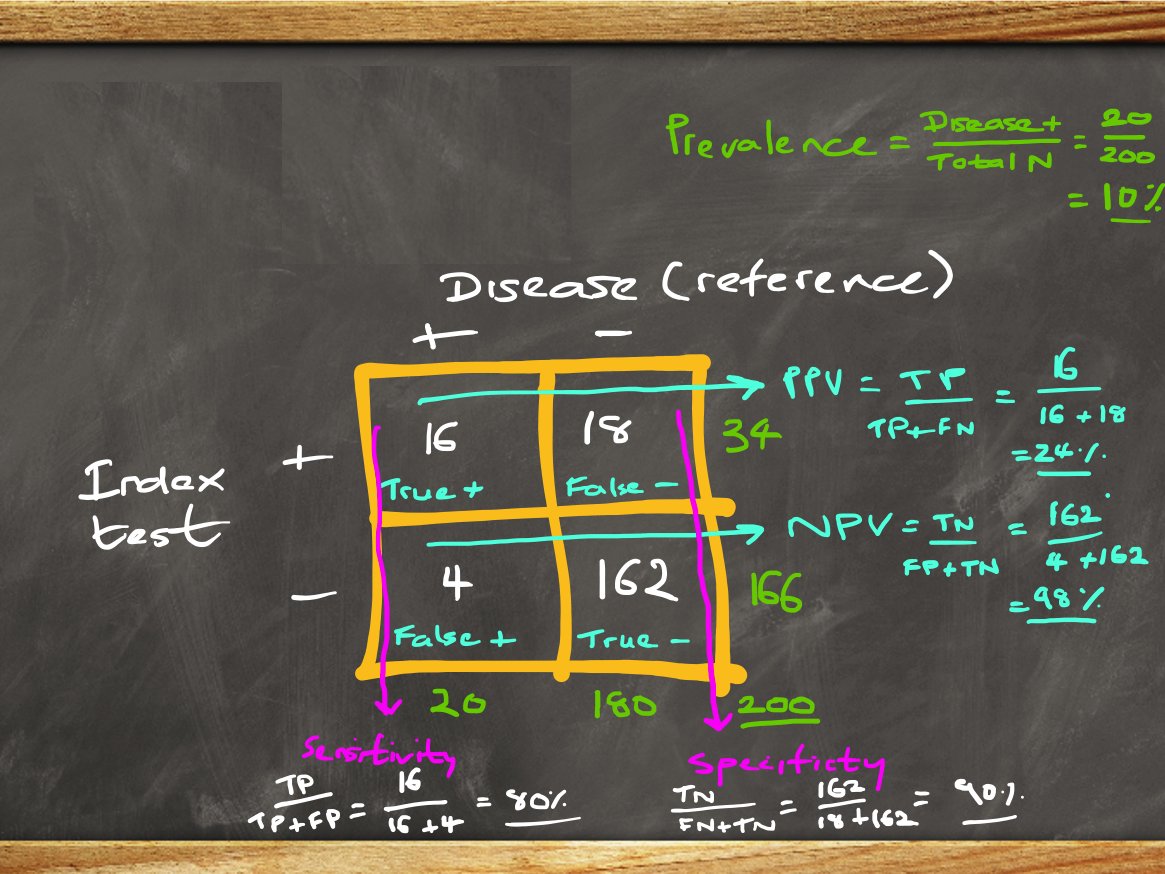 Prevalence = Disease+ / Total N = 20 / 200
= 10%
Disease (reference)
+ −
PPV = TP / TP+FN = 16 / 16+18
= 24%
+ 16 18 34
Index test
True + False −
NPV = TN / FP+TN = 162 / 4+162
= 98%
− 4 162 166
False + True −
20 180 200
Sensitivity
TP / TP+FP = 16 / 16+4 = 80%
Specificty
TN / FN+TN = 162 / 18+162 = 90%